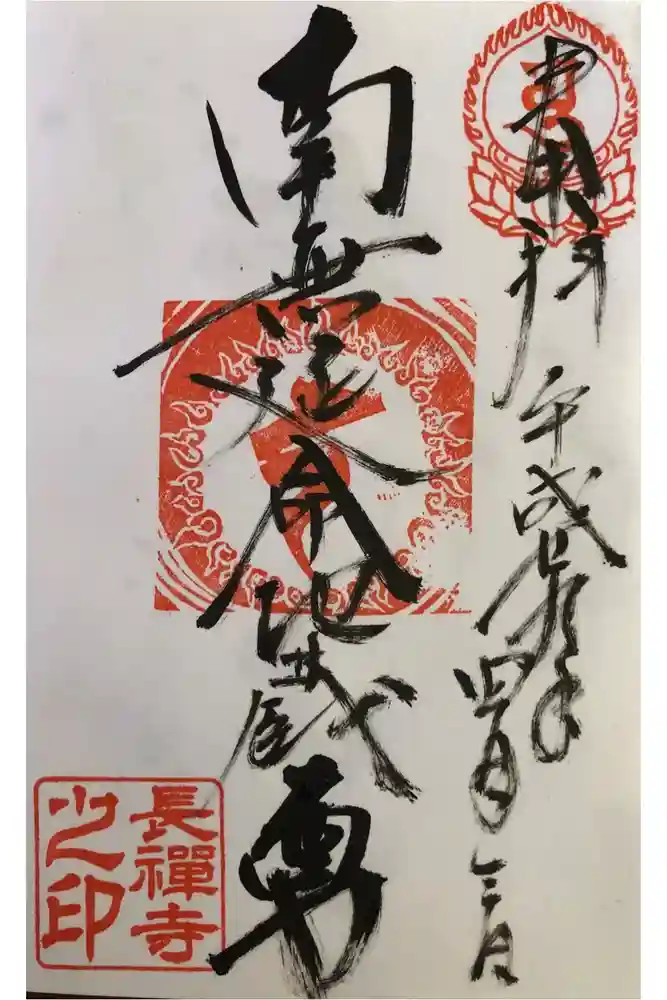 奉拝
平成
年四月三日
南無延命地蔵尊
長禪寺
之印